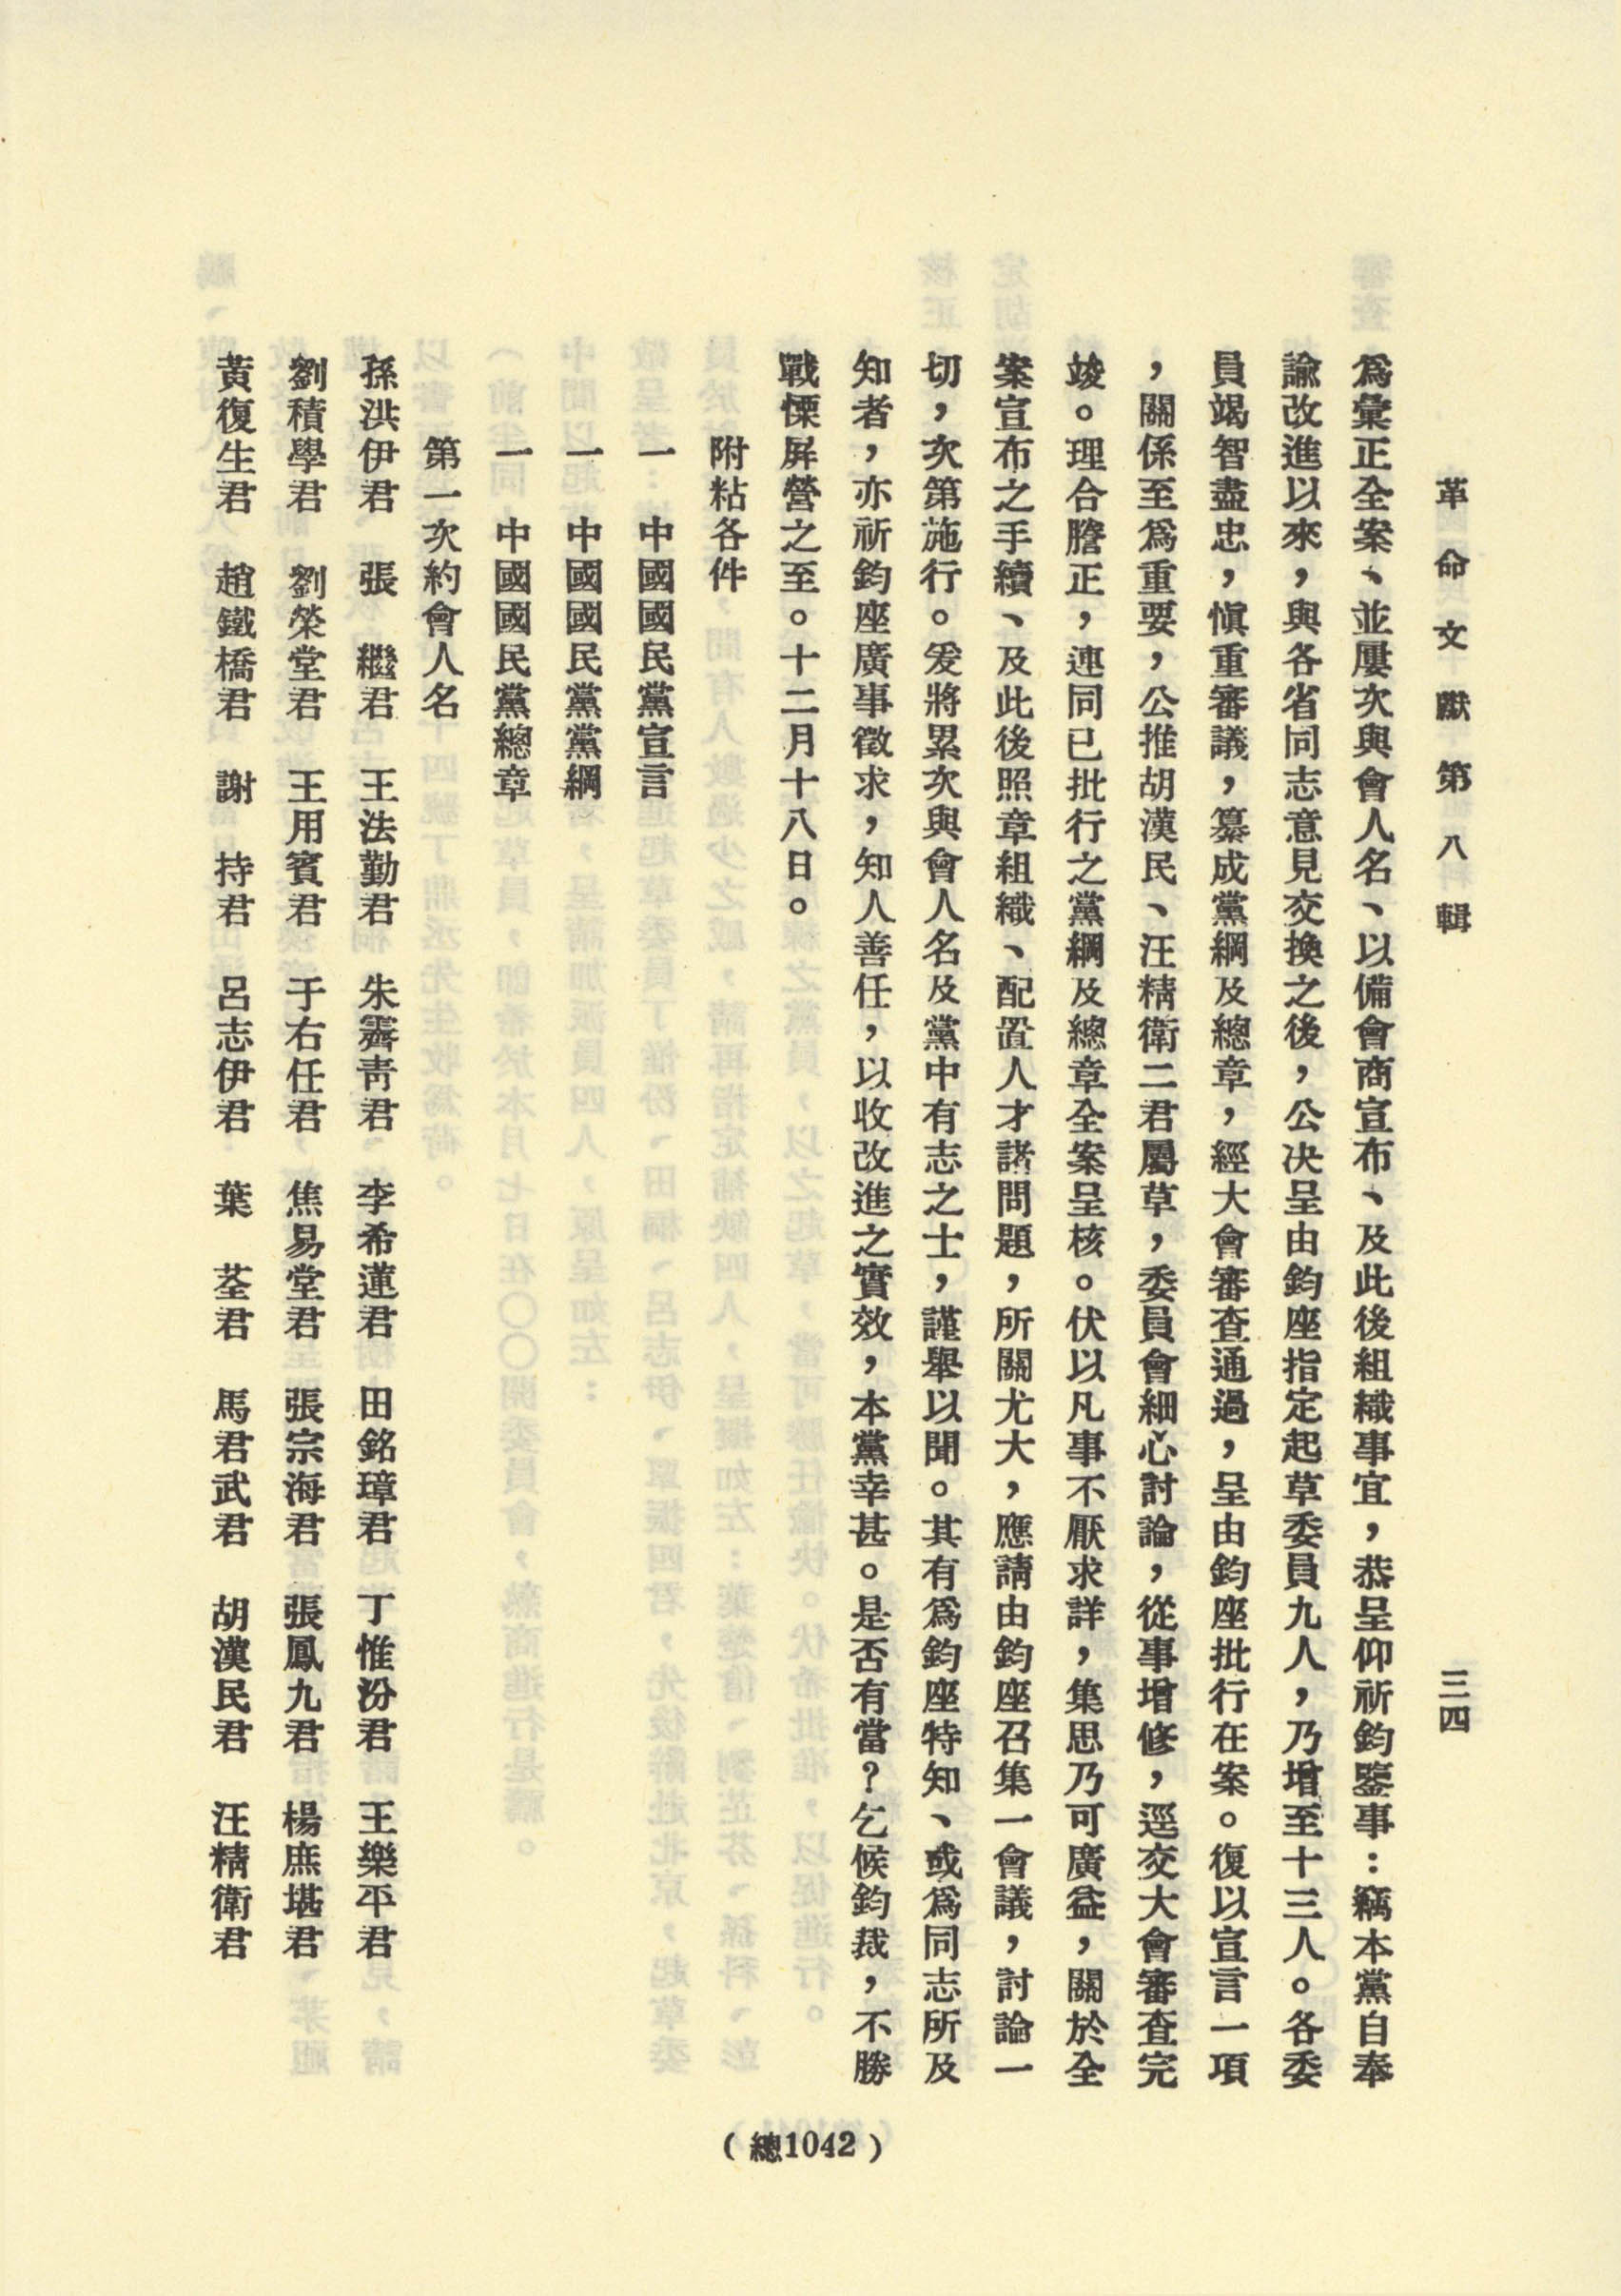 革命文獻第八輯　三四
爲彙正全案、並屢次與會人名、以備會商宣布、及此後組織事宜，恭呈仰祈鈞鑒事：竊本黨自奉
諭改進以來，與各省同志意見交換之後，公决呈由鈞座指定起草委員九人，乃增至十三人。各委
員竭智盡忠，愼重審議，纂成黨綱及總章，經大會審查通過，呈由鈞座批行在案。復以宣言一項
，關係至爲重要，公推胡漢民、汪精衛二君屬草，委員會細心討論，從事增修，逕交大會審查完
竣。理合謄正，連同已批行之黨綱及總章全案呈核。伏以凡事不厭求詳，集思乃可廣益，關於全
案宣布之手續、及此後照章組織、配置人才諸問題，所關尤大，應請由鈞座召集一會議，討論一
切，次第施行。爰將累次與會人名及黨中有志之士，謹舉以聞。其有爲鈞座特知、或爲同志所及
知者，亦祈鈞座廣事徵求，知人善任，以收改進之實效，本黨幸甚。是否有當？乞候鈞裁，不勝
戰慄屏營之至。十二月十八日。
附粘各件
一　中國國民黨宣言
一　中國國民黨黨綱
一　中國國民黨總章
第一次約會人名
孫洪伊君　張　繼君　王法勤君　朱霽靑君　李希蓮君　田銘璋君　丁惟汾君　王樂平君
劉積學君　劉榮堂君　王用賓君　于右任君　焦易堂君　張宗海君　張鳳九君　楊庶堪君
黃復生君　趙鐵橋君　謝　持君　呂志伊君　葉　荃君　馬君武君　胡漢民君　汪精衛君
（總1042）